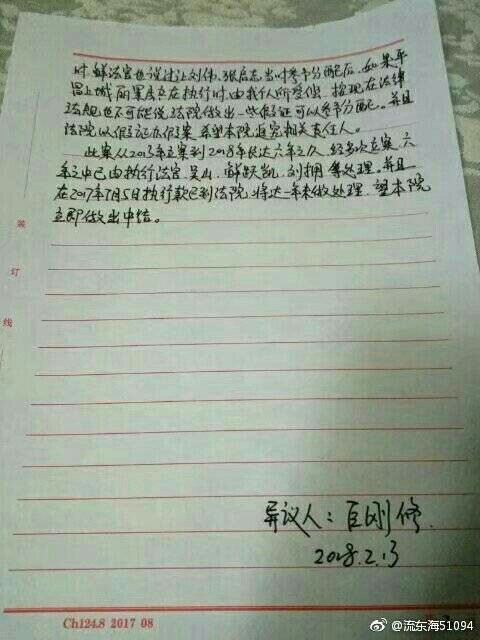 时, 鲜法官也说过让刘伟、张启志当时参予分配后, 如果平
昌上城丽景房产在执行时, 由我们所答偿, 按现在法律
法规也不可能说, 法院做出一些假证可以参予分配。并且
法院以假证办假案, 希望本院追究相关责任人。
此案从2013年立案到2018年长达六年之久, 经多次立案, 六
年之中已由执行法官, 吴山, 鲜跃凯, 刘拥 等处理。并且
在2017年7月5日执行款已到法院, 将近一年未做处理, 望本院
立即做出中结。
装
订
线
异议人: 巨刚修
2018.2.13
Ch124.8 2017 08
@流东海51094